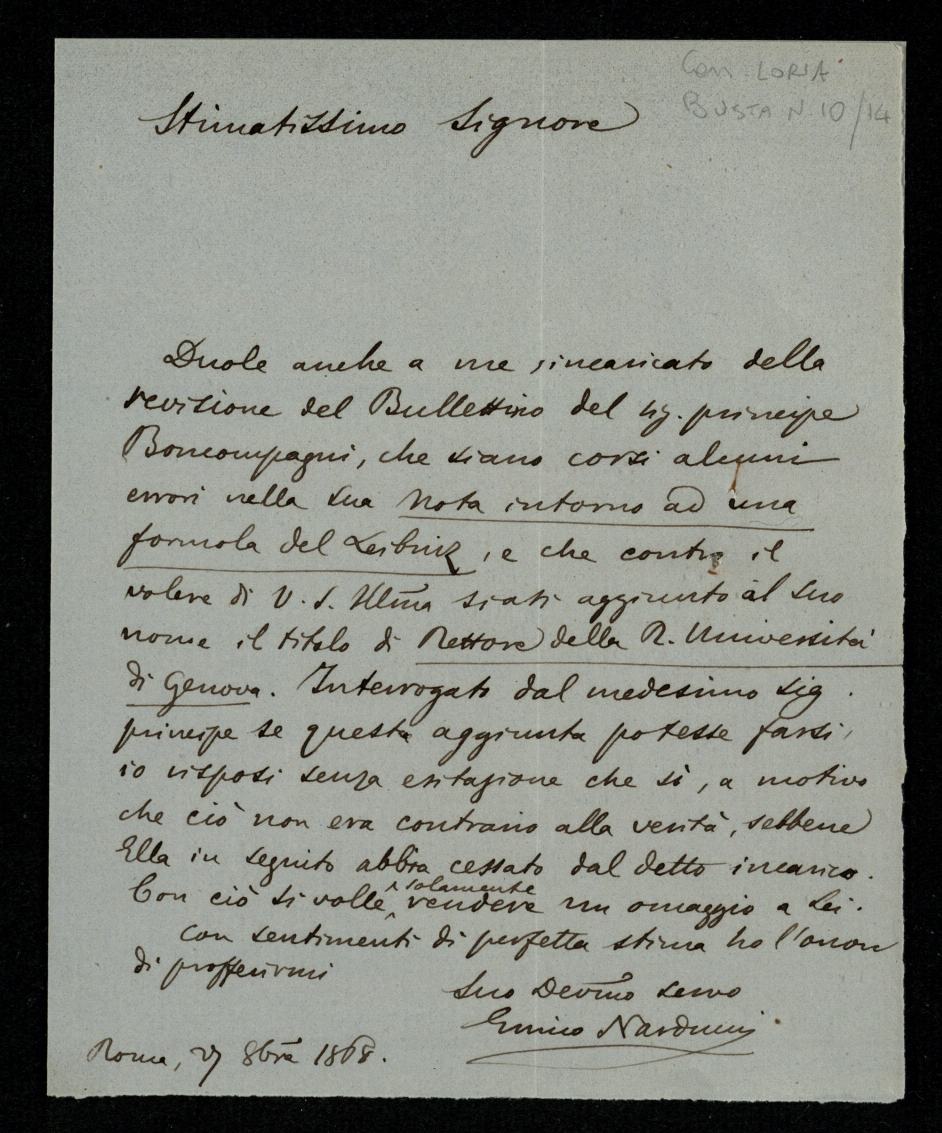 Corr. LORIA
BUSTA N. 10/14
Stimatissimo Signore
Duole anche a me, incaricato della
revisione del Bullettino del sig. principe
Boncompagni, che siano corsi alcuni
errori nella sua Nota intorno ad una
formola del Leibniz, e che contro il
volere di V. S. Illma siasi aggiunto al suo
nome il titolo di Rettore della R. Università
di Genova. Interrogato dal medesimo sig.
principe se questa aggiunta potesse farsi,
io risposi senza esitazione che sì, a motivo
che ciò non era contrario alla verità, sebbene
Ella in seguito abbia cessato dal detto incarico.
Con ciò si volle solamente rendere un omaggio a Lei.
Con sentimenti di perfetta stima ho l'onore
di profferirmi
Suo Devmo servo
Enrico Narducci
Roma, 27 8bre 1868.